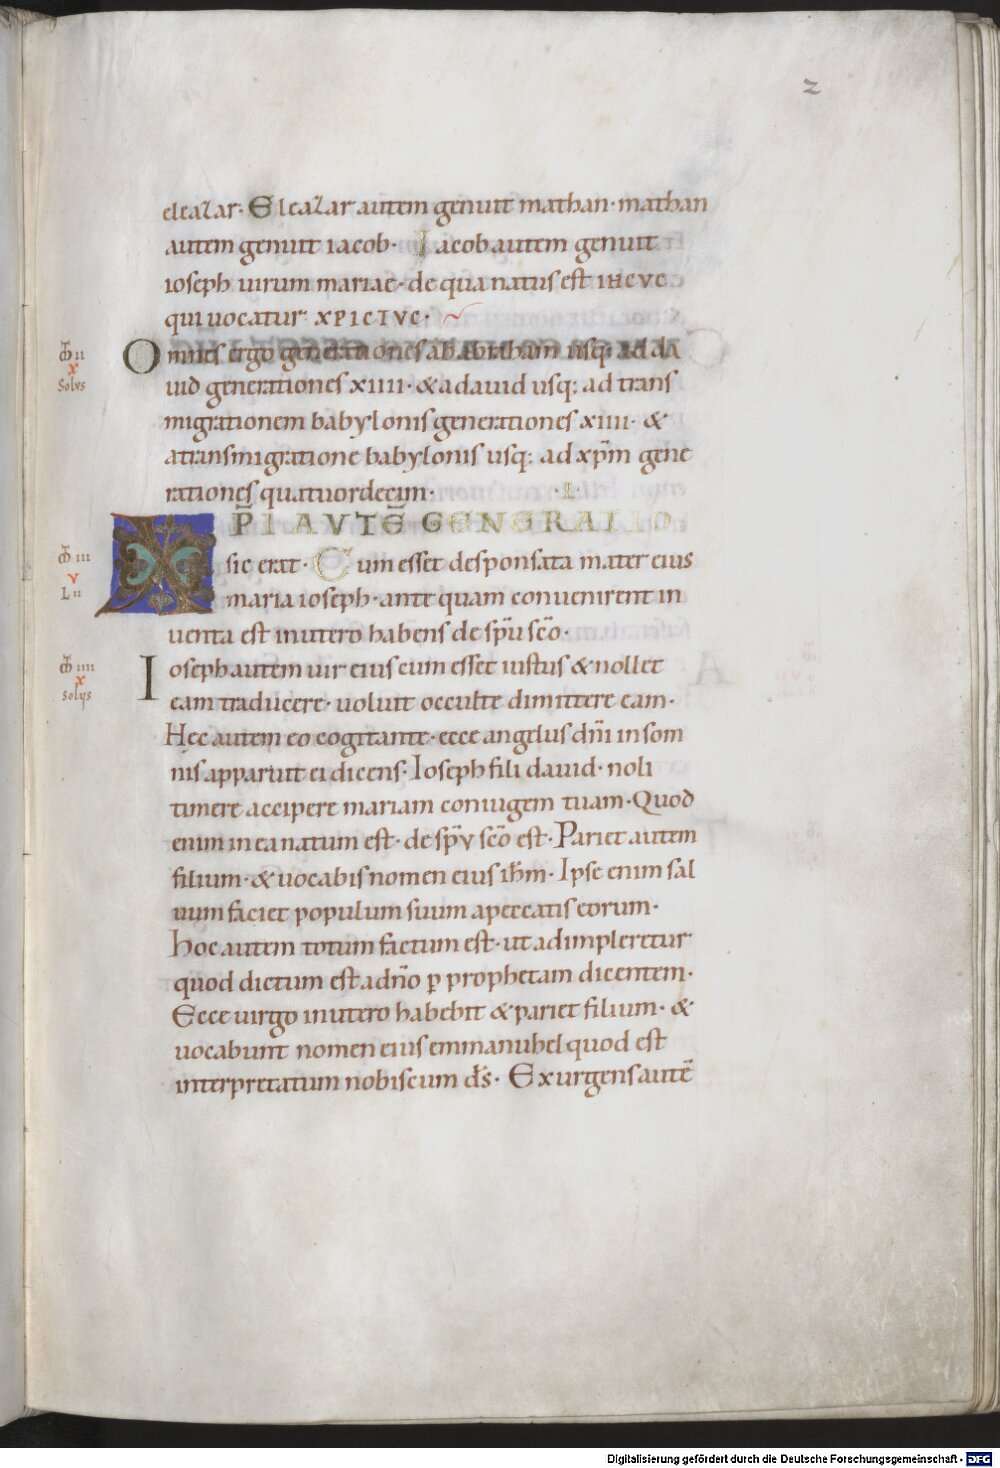 2
eleazar· Eleazar autem genuit mathan· mathan
autem genuit iacob· Iacob autem genuit
ioseph uirum mariae· de qua natus est IHCVC
qui uocatur XPICTVC·
Omnes ergo generationes ab abraham usq: ad da
uid generationes xiiii· & a dauid usq: ad trans
migrationem babylonis generationes xiiii· &
a transmigratione babylonis usq: ad xp̄m gene
rationes quatuordecim· ·I·
XP̄I AVTĒ GENERATIO
sic erat· Cum esset desponsata mater eius
maria ioseph· ante quam conuenirent in
uenta est in utero habens de sp̄u sc̄o·
Ioseph autem uir eius cum esset iustus & nollet
eam traducere· uoluit occulte dimittere eam·
Hęc autem eo cogitante· ecce angelus dn̄i in som
nis apparuit ei dicens· Ioseph fili dauid· noli
timere accipere mariam coniugem tuam· Quod
enim in ea natum est· de sp̄v sc̄o est· Pariet autem
filium· & uocabis nomen eius ih̄m· Ipse enim sal
uum faciet populum suum a peccatis eorum·
Hoc autem totum factum est· ut adimpleretur
quod dictum est a dn̄o p̱ prophetam dicentem·
Ecce uirgo in utero habebit & pariet filium· &
uocabunt nomen eius emmanuhel quod est
interpretatum nobiscum d̄s· Exurgens autē
II
x
Solvs
III
v
L II
IIII
x
Solvs
Digitalisierung gefördert durch die Deutsche Forschungsgemeinschaft - DFG